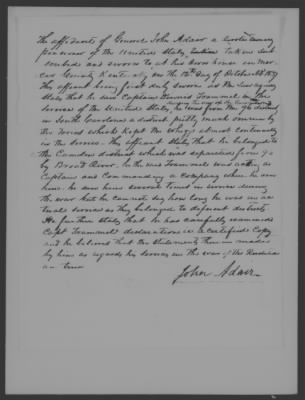 The affidavit of General John Adair a Revolutionary
pensioner of the United States Taken sub-
scribed and sworn to at his own house in Mer-
cer County Kentucky on the 12th Day of October 1837
This affiant being first duly sworn in the due
States that he saw Captain Trammel in the
Service of the United States
in South Carolina a district pretty much overrun by
the Tories which kept the Whigs almost continually
in the Service. This affiant States that he belonged to
the Camden district which was separated from 96
by Broad River. In the was acting as
Captain and Commanding a company when he saw
him. He saw him several times in service during
the war but he cannot say how long he was in ac-
tual service as they belonged to different districts
He further States that he has carefully examined
Capt Trammels declaration in a certified Copy
and he believes that the statements therein made
by him as regards his service in the war of the Revolution
are true
John Adair